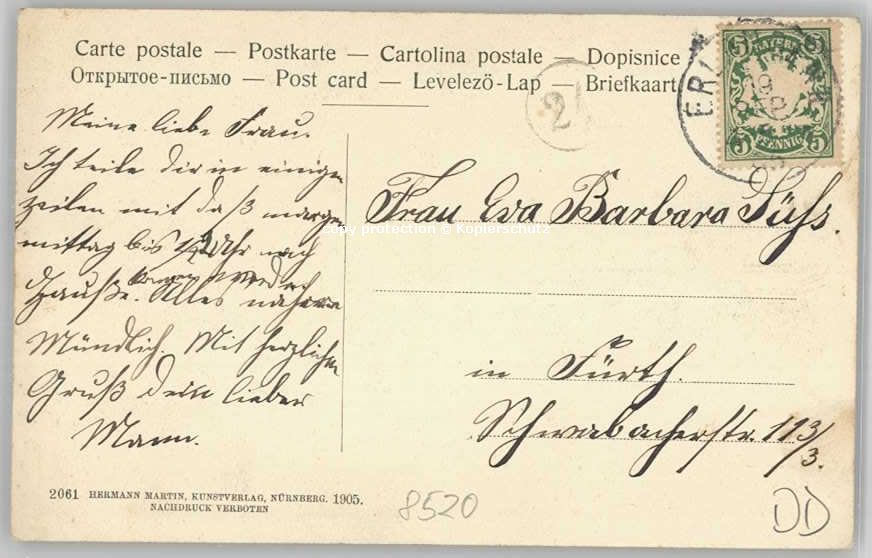 Carte postale — Postkarte — Cartolina postale — Dopisnice
Открытое-письмо — Post card — Levelező-Lap — Briefkaart
5 BAYERN 5
5 PFENNIG 5
19
SEP
2
Meine liebe Frau.
Ich teile dir in einigen
zeilen mit daß morgen
mittag bis 12 Uhr nach
Hauße. komme werde
Alles nähere
Mündlich. Mit herzlichen
Gruß dein lieber
Mann.
Frau Eva Barbara Süßs.
in Fürth.
Schwabacherstr. 113/3.
copy protection © Kopierschutz
2061 HERMANN MARTIN, KUNSTVERLAG, NÜRNBERG. 1905.
NACHDRUCK VERBOTEN
8520
DD